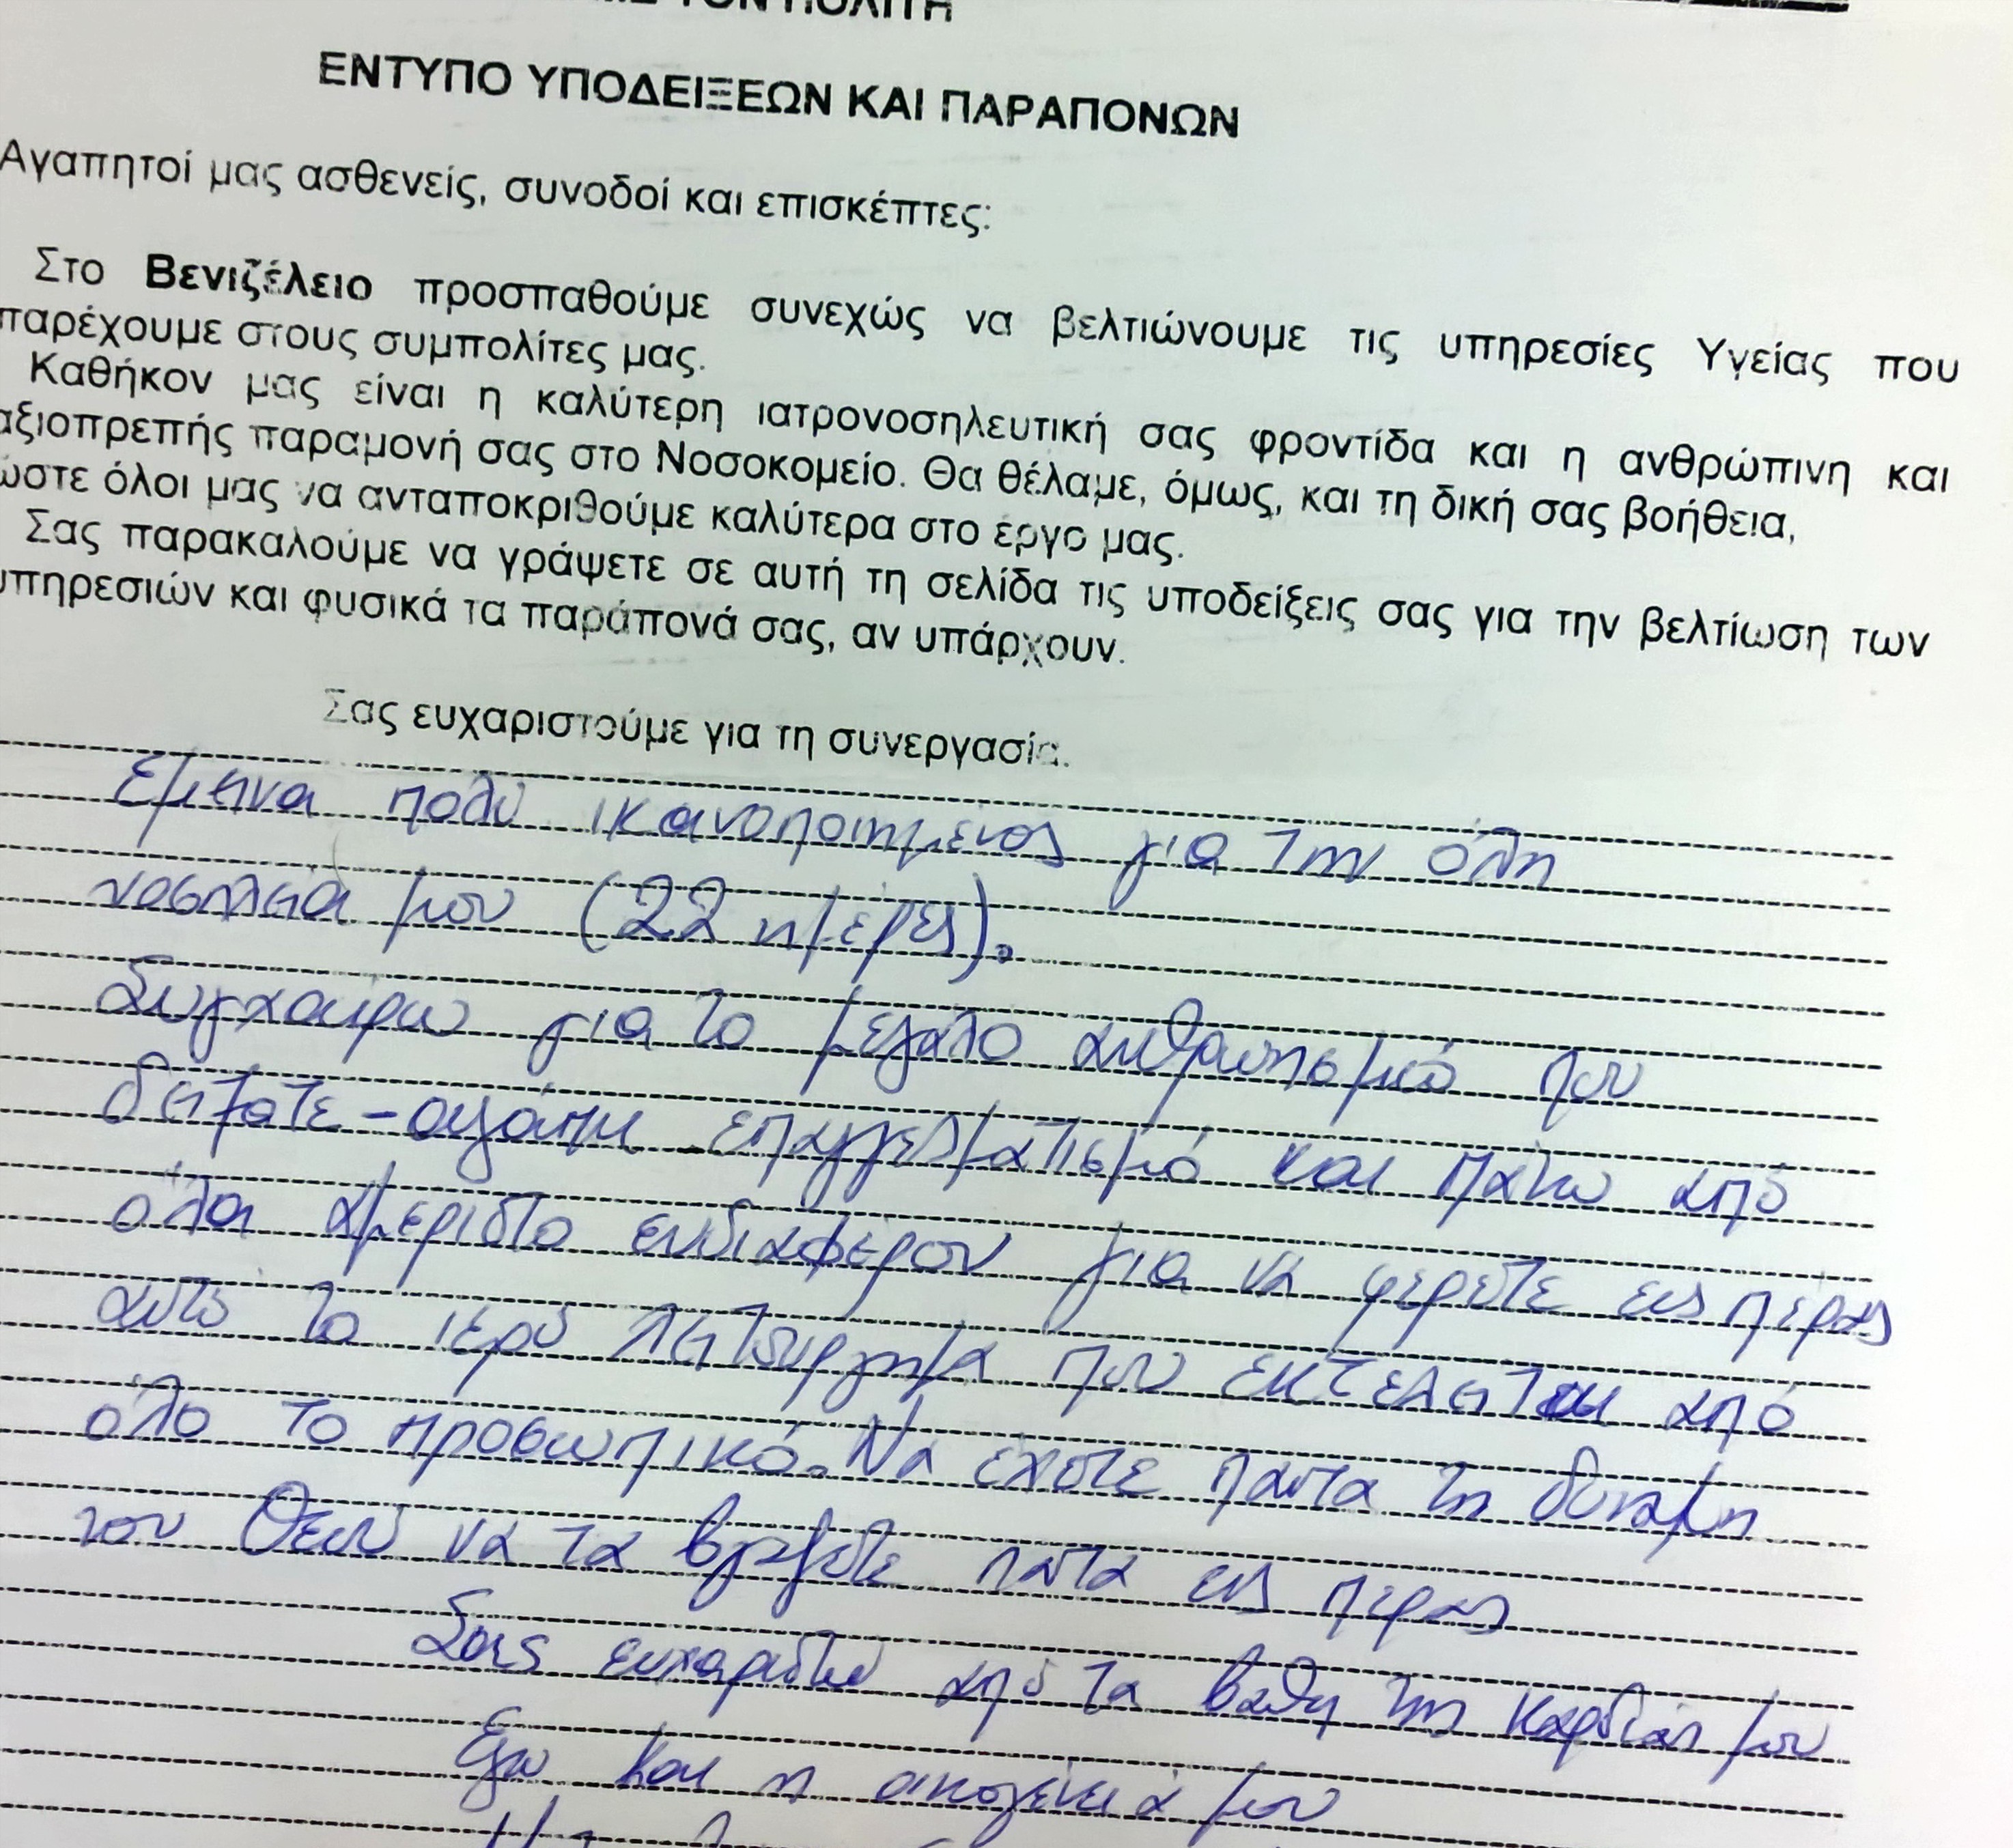 ΤΟΝ ΠΟΛΙΤΗ
ΕΝΤΥΠΟ ΥΠΟΔΕΙΞΕΩΝ ΚΑΙ ΠΑΡΑΠΟΝΩΝ
Αγαπητοί μας ασθενείς, συνοδοί και επισκέπτες:
Στο Βενιζέλειο προσπαθούμε συνεχώς να βελτιώνουμε τις υπηρεσίες Υγείας που
παρέχουμε στους συμπολίτες μας.
Καθήκον μας είναι η καλύτερη ιατρονοσηλευτική σας φροντίδα και η ανθρώπινη και
αξιοπρεπής παραμονή σας στο Νοσοκομείο. Θα θέλαμε, όμως, και τη δική σας βοήθεια,
ώστε όλοι μας να ανταποκριθούμε καλύτερα στο έργο μας.
Σας παρακαλούμε να γράψετε σε αυτή τη σελίδα τις υποδείξεις σας για την βελτίωση των
υπηρεσιών και φυσικά τα παράπονά σας, αν υπάρχουν.
Σας ευχαριστούμε για τη συνεργασία.
Εμεινα πολύ ικανοποιημένος για την όλη
νοσηλεία μου (22 ημέρες).
Συγχαίρω για το μεγάλο ανθρωπισμό που
δείξατε - επαγγελματισμό και πάνω από
όλα αμέριστο ενδιαφέρον για να φέρετε εις πέρας
αυτό το ιερό λειτούργημα που εκτελείται από
όλο το προσωπικό. Να έχετε πάντα τη δύναμη
του Θεού να τα πάντα εις πέρας
Σας ευχαριστώ από τα βάθη της καρδιάς μου
Εγώ και η οικογένειά μου